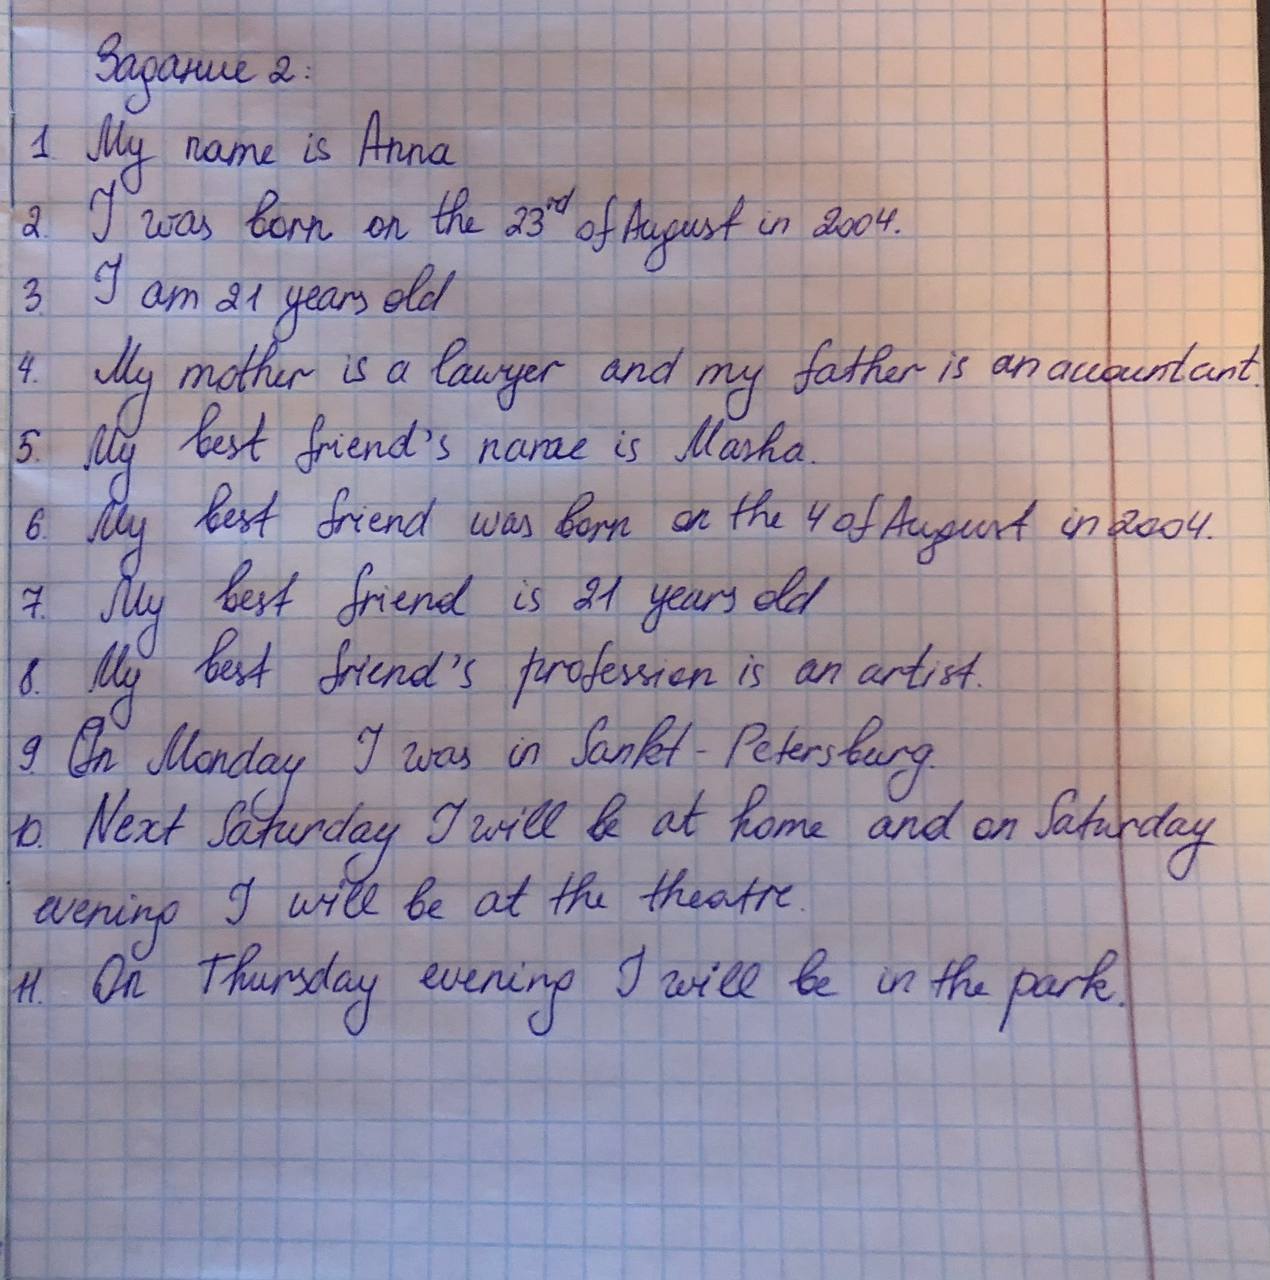 Задание 2:
1. My name is Anna
2. I was born on the 23rd of August in 2004.
3. I am 21 years old
4. My mother is a lawyer and my father is an accountant.
5. My best friend's name is Masha.
6. My best friend was born on the 4 of August in 2004.
7. My best friend is 21 years old
8. My best friend's profession is an artist.
9. On Monday I was in Sankt-Petersburg.
10. Next Saturday I will be at home and on Saturday
evening I will be at the theatre.
11. On Thursday evening I will be in the park.